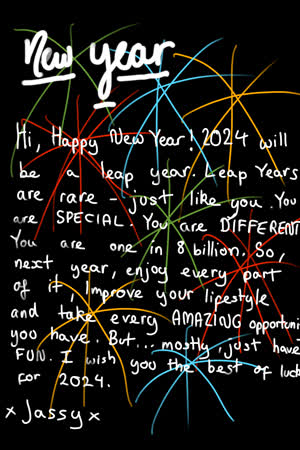 New year
Hi, Happy New Year! 2024 will
be a leap year. Leap Years
are rare - just like you. You
are SPECIAL. You are DIFFERENT
You are one in 8 billion. So,
next year, enjoy every part
of it, Improve your lifestyle
and take every AMAZING opportuni
you have. But... mostly, just have
FUN. I wish you the best of luck
for 2024.
x Jassy x